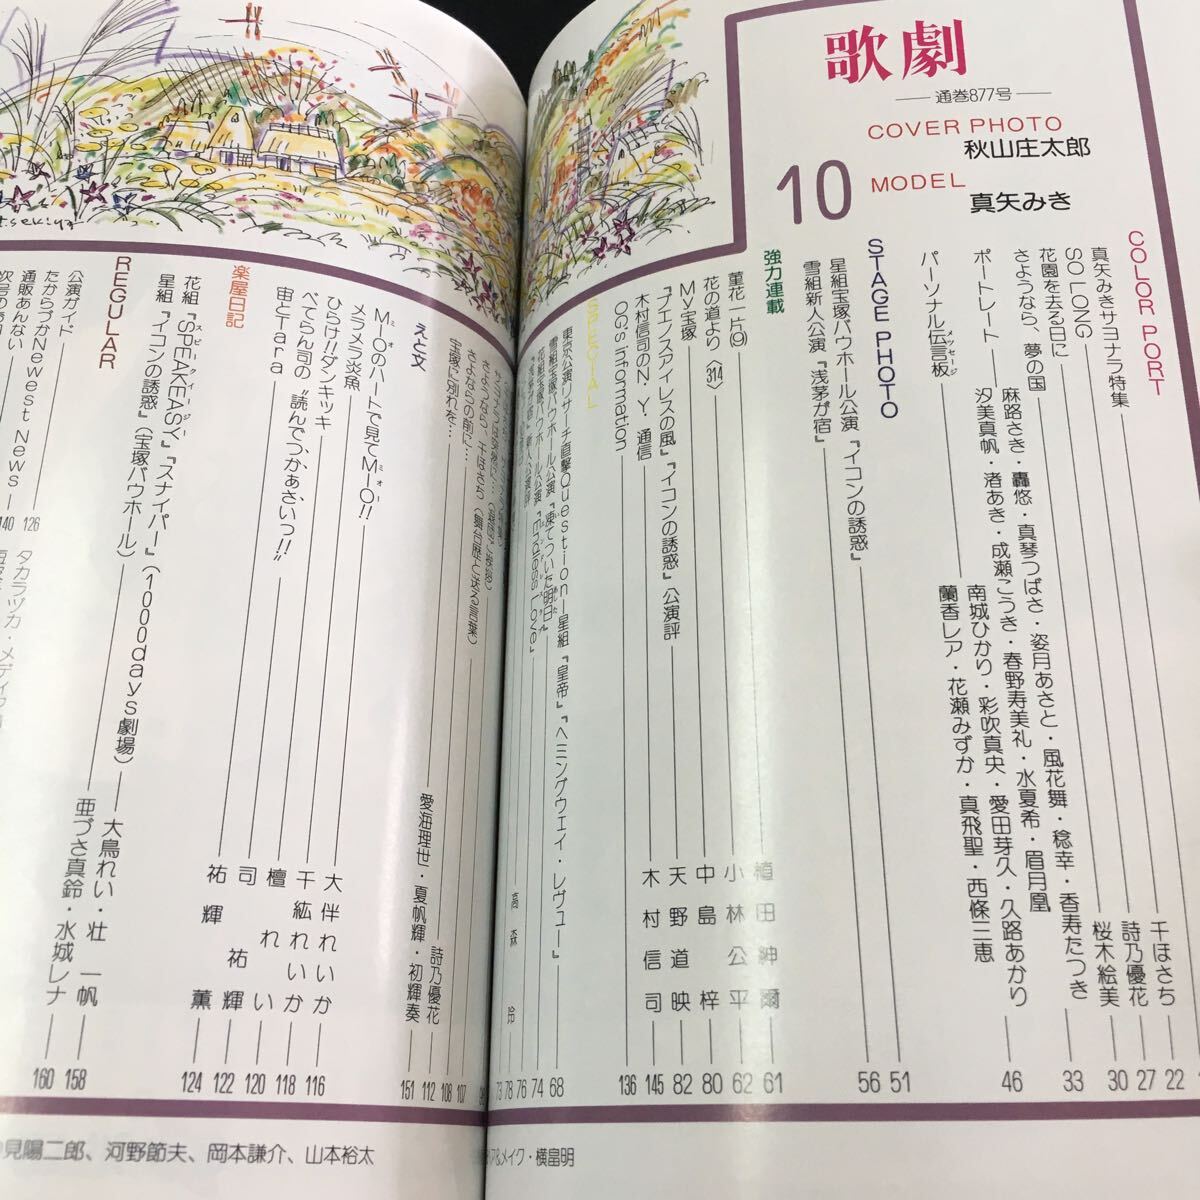 歌劇
通巻877号
COVER PHOTO
秋山庄太郎
10
MODEL
真矢みき
COLOR PORT
真矢みきサヨナラ特集
SO LONG
花園を去る日に
さようなら、夢の国
千ほさち 22
詩乃優花 27
桜木絵美 30
ポートレート
麻路さき・轟悠・真琴つばさ・姿月あさと・風花舞・稔幸・香寿たつき
汐美真帆・渚あき・成瀬こうき・春野寿美礼・水夏希・眉月凰 33
パーソナル伝言板
メッセージ
南城ひかり・彩吹真央・愛田芽久・久路あかり
蘭香レア・花瀬みずか・真飛聖・西條三恵 46
STAGE PHOTO
星組宝塚バウホール公演『イコンの誘惑』 51
雪組新人公演『浅茅が宿』 56
強力連載
菫花一片(9) 植田紳爾 61
花の道より〈314〉 小林公平 62
My宝塚 中島梓 80
『ブエノスアイレスの風』『イコンの誘惑』公演評 天野道映 82
木村信司のN・Y・通信 木村信司 145
OG's Information 136
SPECIAL
東京公演リサーチ直撃Question—星組『皇帝』『ヘミングウェイ・レヴュー』 68
雪組宝塚バウホール公演『凍てついた明日』 74
花組宝塚バウホール公演『Endless Love』 76
高森鈴 78
73
さよならの前に…
さようなら、千ほさち〈舞台歴と送る言葉〉 107
宝塚に別れを… 108
詩乃優花 112
愛海理世・夏帆輝・初輝奏 151
えと文
MIOのハートで見てMIO!!
ミオ
ミオー
大伴れいか 116
メラメラ炎魚 千紘れいか 118
ひらけ!!ダンキッキ 檀れい 120
べてらん司の“読んでつかぁさいっ!!” 司祐輝 122
宙とTiara 祐輝薫 124
楽屋日記
花組『SPEAKEASY』『スナイパー』(1000days劇場) 大鳥れい・壮一帆 158
スピークイージー
星組『イコンの誘惑』(宝塚バウホール) 亜づさ真鈴・水城レナ 160
REGULAR
公演ガイド
たからづかNewest News 126
通販あんない 140
次号のあ
タカラヅカ・メディア
見陽二郎、河野節夫、岡本謙介、山本裕太
ア&メイク・横畠明